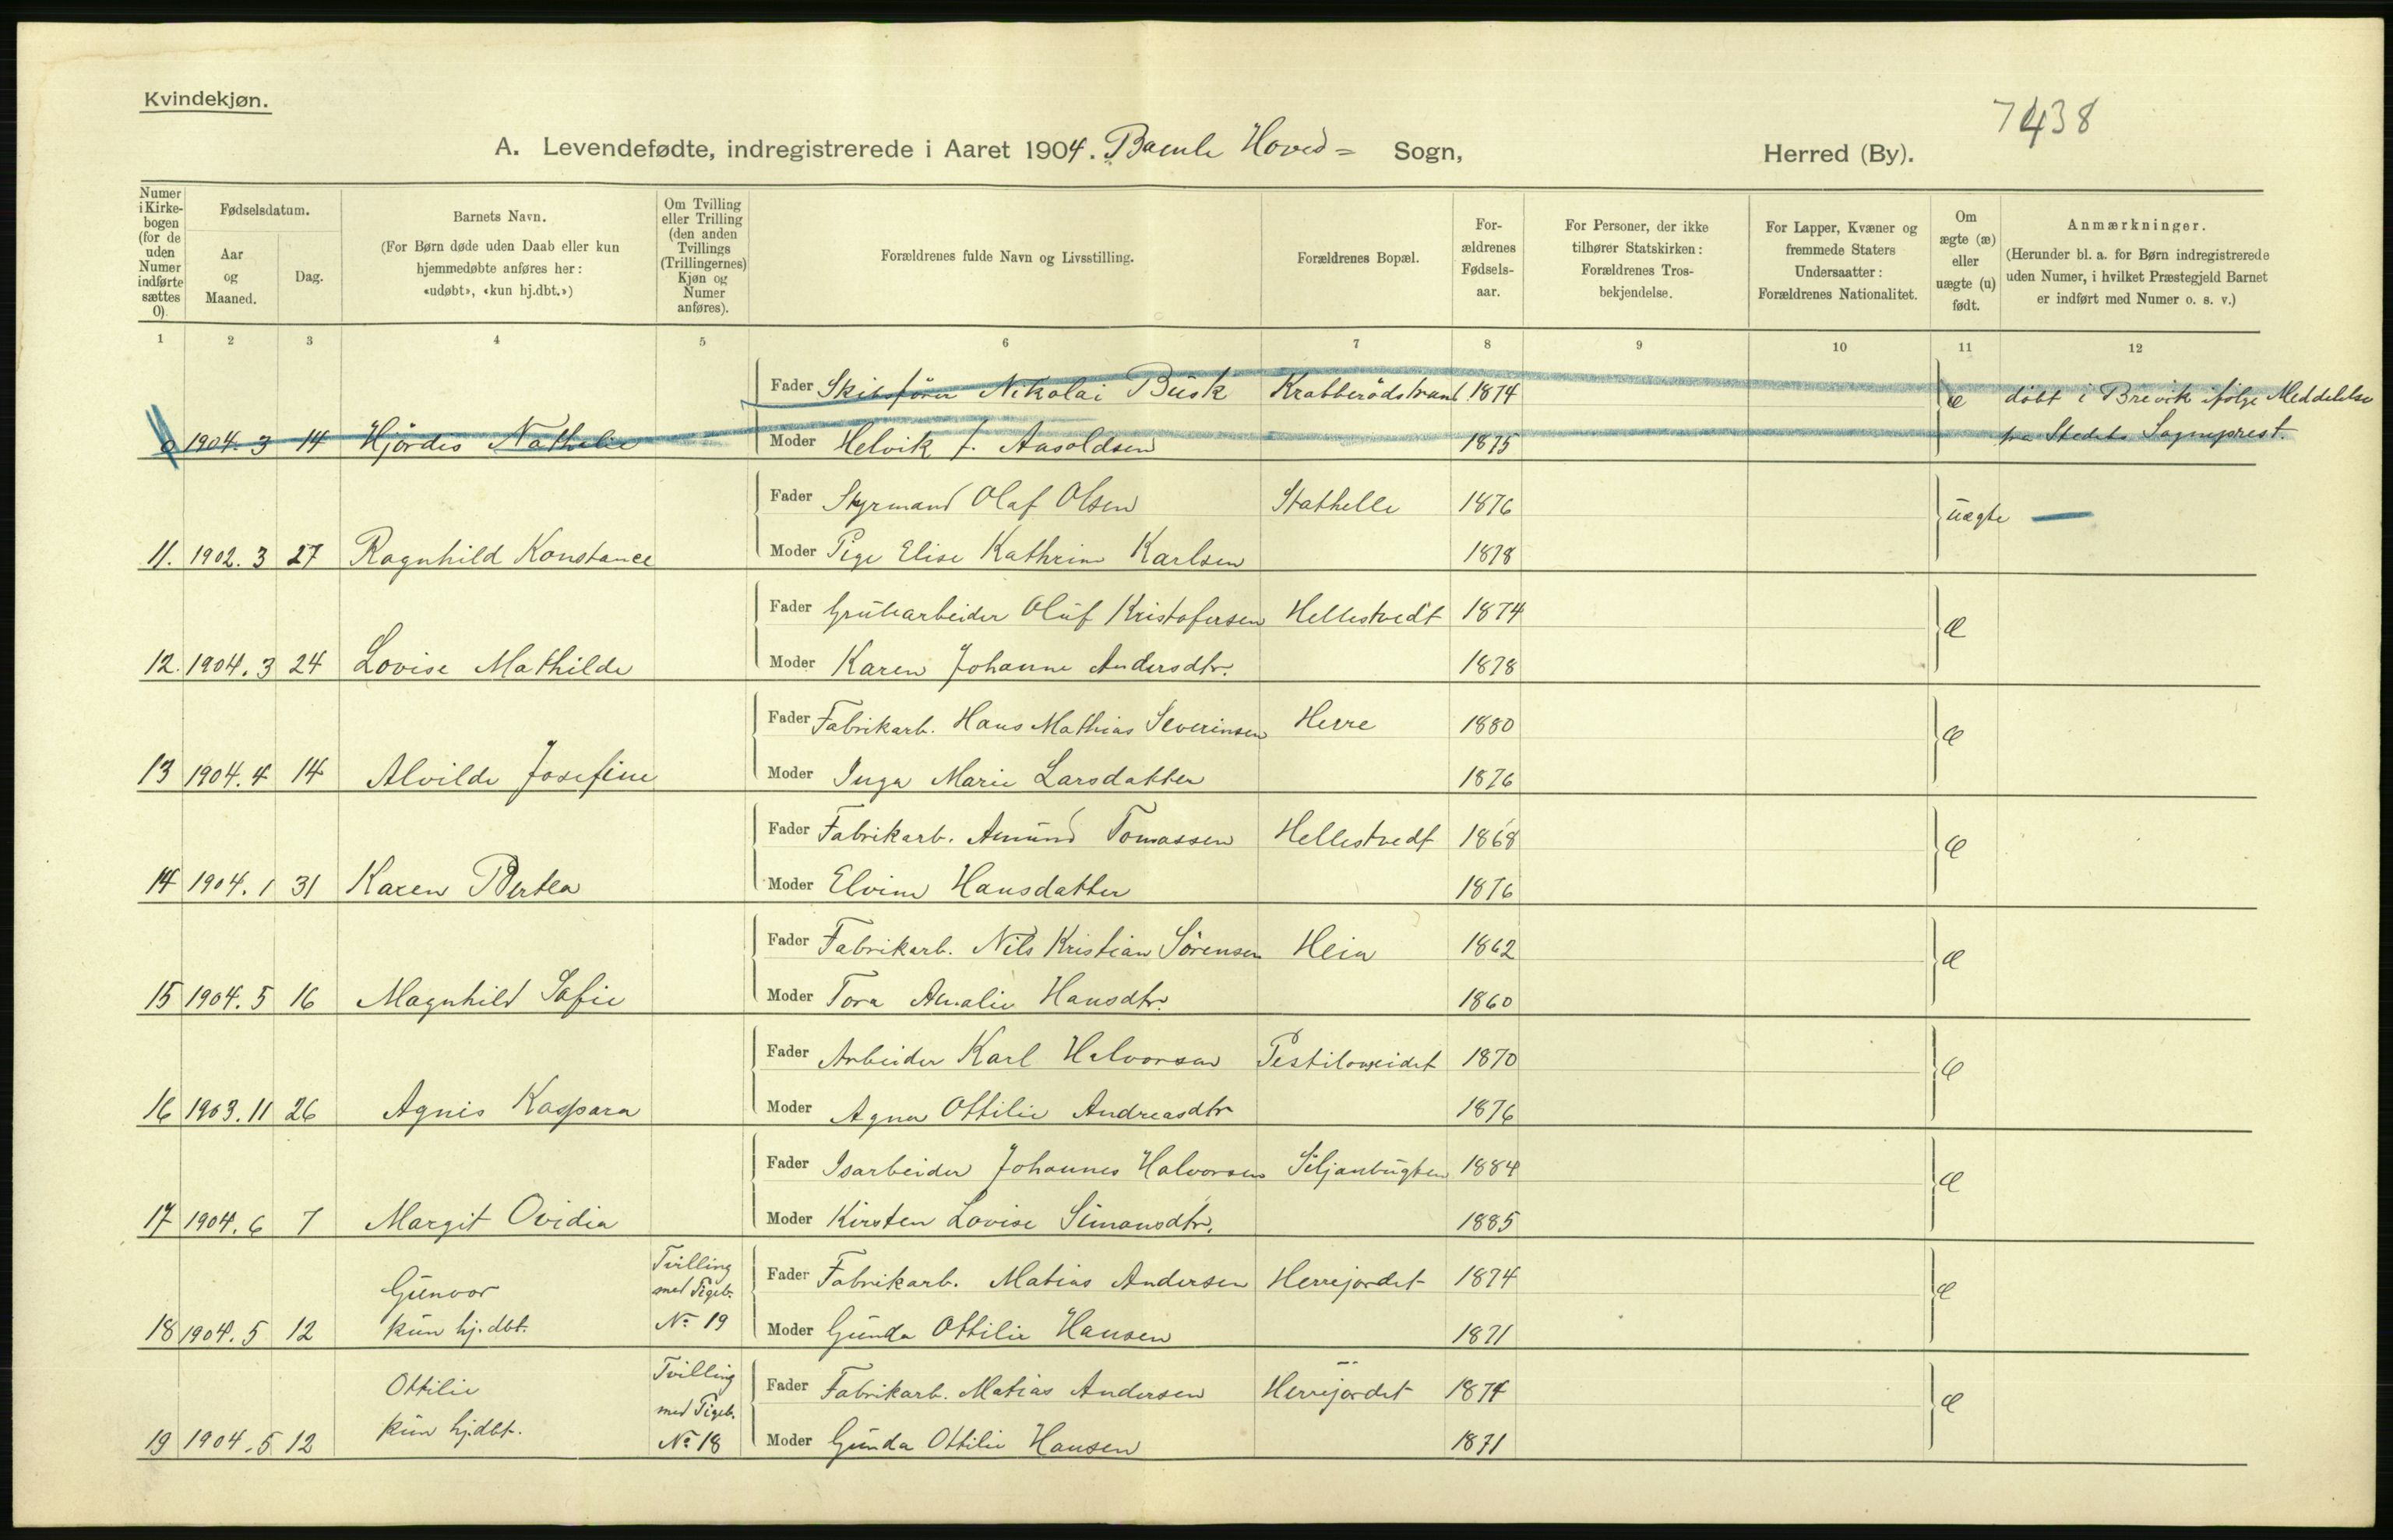 Kvindekjøn.
7438
A. Levendefødte, indregistrerede i Aaret 1904. Bamle Hoved= Sogn, Herred (By).
Numer i Kirke-bogen (for de uden Numer indførte sættes 0).
Fødselsdatum.
Aar og Maaned.
Dag.
Barnets Navn.
(For Børn døde uden Daab eller kun hjemmedøbte anføres her: «udøbt», «kun hj.dbt.»)
Om Tvilling eller Trilling (den anden Tvillings (Trillingernes) Kjøn og Numer anføres).
Forældrenes fulde Navn og Livsstilling.
Forældrenes Bopæl.
For-ældrenes Fødsels-aar.
For Personer, der ikke tilhører Statskirken: Forældrenes Tros-bekjendelse.
For Lapper, Kvæner og fremmede Staters Undersaatter: Forældrenes Nationalitet.
Om ægte (æ) eller uægte (u) født.
Anmærkninger.
(Herunder bl. a. for Børn indregistrerede uden Numer, i hvilket Præstegjeld Barnet er indført med Numer o. s. v.)
1 2 3 4 5 6 7 8 9 10 11 12
Fader Skibsfører Nikolai Busk Krabberödstrand 1874 æ döbt i Brevik ifölge Meddelelse
0 1904. 3 14 Hjördis Nathalie Moder Helvik J. Aasoldsen 1875 fra Stedets Sogneprest.
Fader Styrmand Olaf Olsen Stathelle 1876 uægte —
11. 1902. 3 27 Ragnhild Konstance Moder Pige Elise Kathrine Karlsen 1878
Fader Grubearbeider Oluf Kristofersen Hellestvedt 1874 æ
12. 1904. 3 24 Lovise Mathilde Moder Karen Johanne Andersdtr. 1878
Fader Fabrikarb. Hans Mathias Severinsen Herre 1880 æ
13 1904. 4 14 Alvilde Josefine Moder Inga Marie Larsdatter 1876
Fader Fabrikarb. Amund Tomassen Hellestvedt 1868 æ
14 1904. 1 31 Karen Bertea Moder Elvine Hansdatter 1876
Fader Fabrikarb. Nils Kristian Sörensen Heia 1862 æ
15 1904. 5 16 Magnhild Sofie Moder Tora Amalie Hansdtr. 1860
Fader Arbeider Karl Halvorsen 1870 æ
16 1903. 11 26 Agnes Kaspara Moder Agna Ottilie Andreasdtr 1876
Fader Isarbeider Johannes Halvorsen Siljanbugten 1884 æ
17 1904. 6 7 Margit Ovidia Moder Kirsten Lovise Simonsdtr. 1885
Gunvor Tvilling med Pigeb. Fader Fabrikarb. Matias Andersen Herrejordet 1874 æ
18 1904. 5 12 kun hj.dbt. No 19 Moder Gunda Ottilie Hansen 1871
Ottilie Tvilling med Pigeb. Fader Fabrikarb. Matias Andersen Herrejordet 1874 æ
19 1904. 5 12 kun hj.dbt. No 18 Moder Gunda Ottilie Hansen 1871